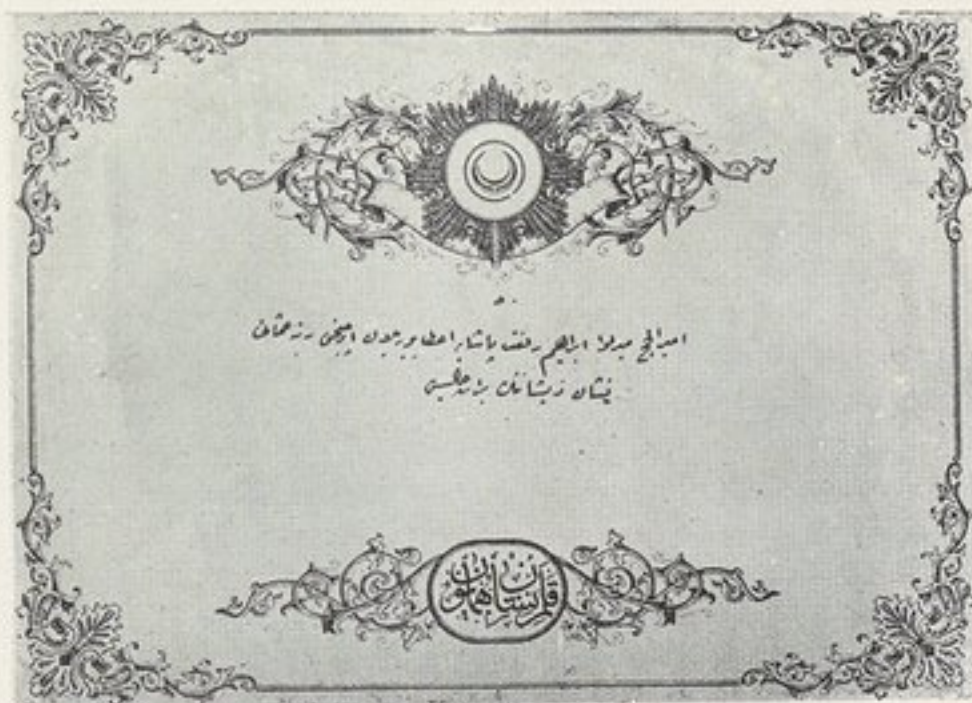 امير الحج ميرلوا ابراهيم رفعت پاشايه اعطا بيوريلان اوچنجى رتبه عثمانى
نشان ذيشاننك براتيدر
قلم نشان همايون